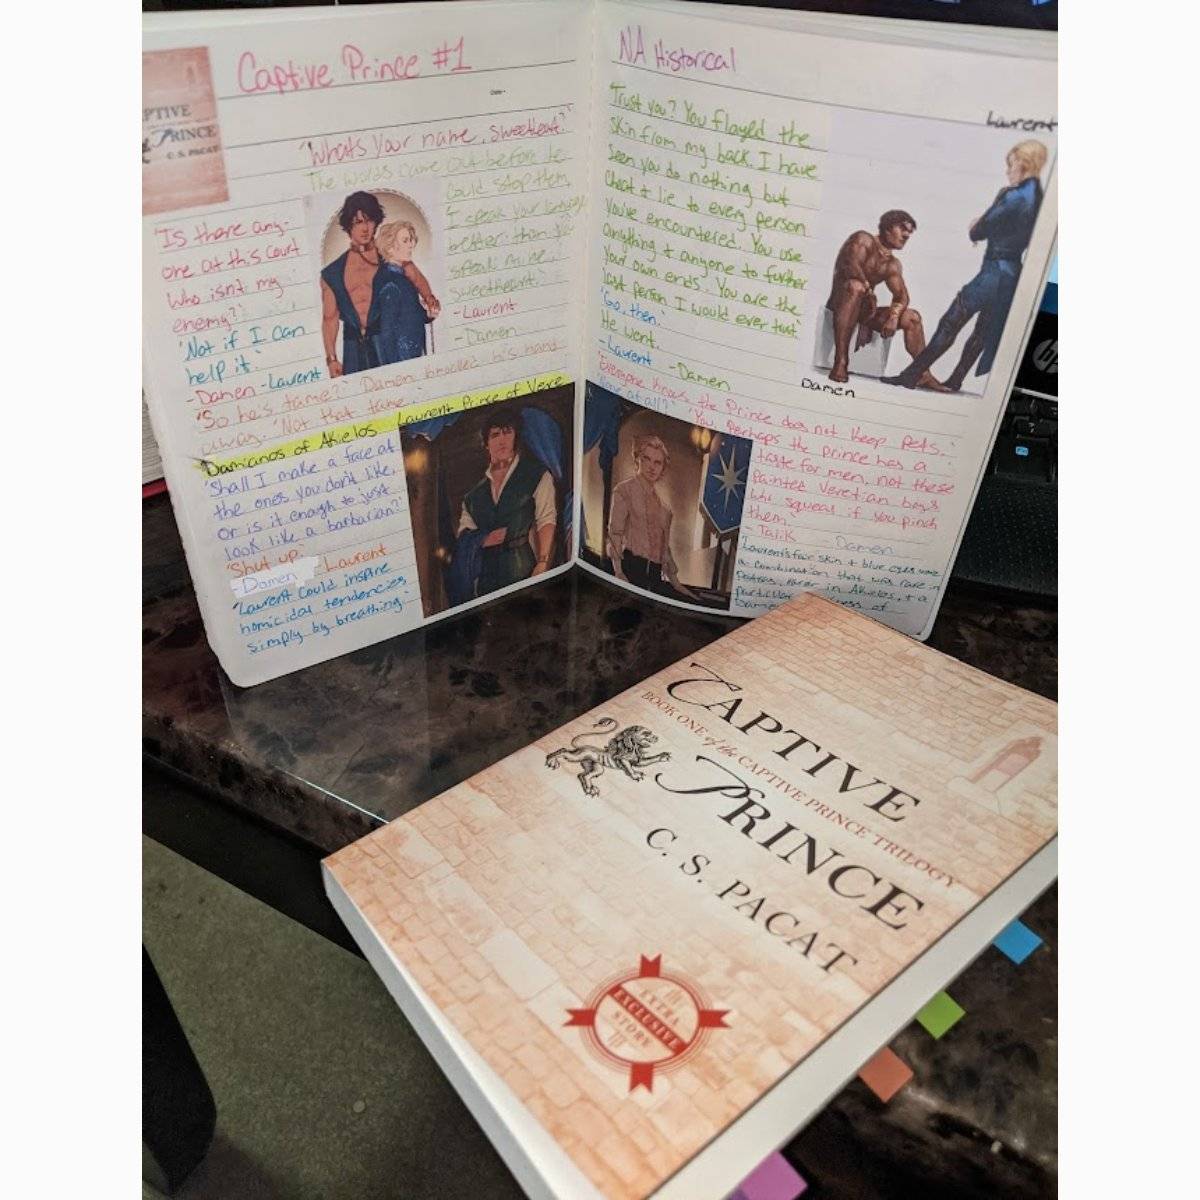 Captive Prince #1
Date·
CAPTIVE
PRINCE
C. S. PACAT
'What's your name, sweetheart?'
The words came out before he
could stop them,
I speak your language
better than you
speak mine,
sweetheart.'
-Laurent
-Damen
'Is there any-
one at this court
who isn't my
enemy?'
'Not if I can
help it.'
-Damen -Laurent
'So he's tame?' Damen knocked his hand
away. 'Not that tame.'
Damianos of Akielos Laurent Prince of Vere
'Shall I make a face at
the ones you don't like,
or is it enough to just
look like a barbarian?'
'Shut up.'
-Damen - Laurent
'Laurent could inspire
homicidal tendencies
simply by breathing.'
NA Historical
Trust you? You flayed the
skin from my back. I have
seen you do nothing but
cheat + lie to every person
you've encountered. You use
anything + anyone to further
your own ends. You are the
last person I would ever trust'
'Go, then.'
He went.
-Laurent -Damen
Laurent
Damen
'Everyone knows the Prince does not keep pets.'
'None at all?' 'You, perhaps the prince has a
taste for men, not these
painted Veretian boys
who squeal if you pinch
them.
- Talik Damen
'Laurent's fair skin + blue eyes were
a combination that was rare in
Patras, rarer in Akielos, + a
particular weakness of
Damen
CAPTIVE
BOOK ONE of the CAPTIVE PRINCE TRILOGY
PRINCE
C. S. PACAT
EXTRA
EXCLUSIVE
STORY
hp